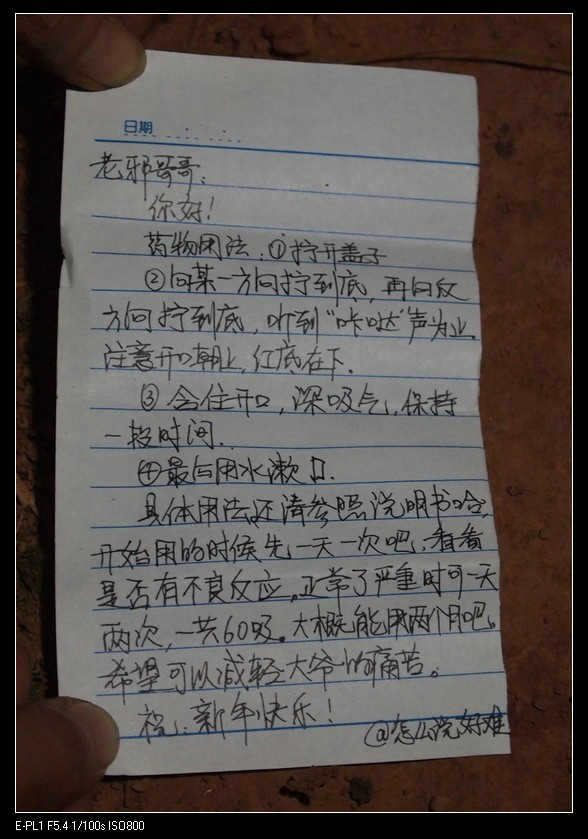 日期
老邪哥哥：
你好！
药物用法：①拧开盖子
②向某一方向拧到底，再向反
方向拧到底，听到“咔哒”声为止
注意开口朝上，红底在下．
③含住开口，深吸气，保持
一段时间．
④最后用水漱口．
具体用法还请参照说明书哈，
开始用的时候先一天一次吧，看看
是否有不良反应。正常了严重时可一天
两次，一共60吸。大概能用两个月吧。
希望可以减轻大爷的痛苦。
祝：新年快乐！
@怎么说好难
E-PL1 F5.4 1/100s ISO800